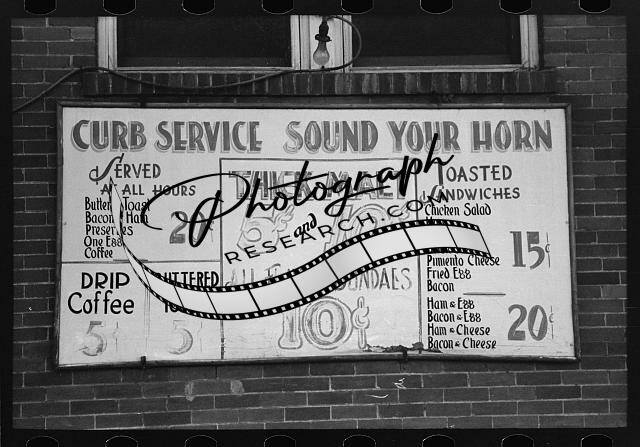 CURB SERVICE SOUND YOUR HORN
SERVED
ALL HOURS
Butter Toast
Bacon Ham
Preserves
One Egg
Coffee
THICK MALT
TOASTED
SANDWICHES
Chicken Salad
Pimento Cheese
Fried Egg
Bacon
15¢
Ham & Egg
Bacon & Egg
Ham & Cheese
Bacon & Cheese
20¢
DRIP
Coffee
5¢
BUTTERED
5¢
SUNDAES
10¢
Photograph
and
RESEARCH.COM